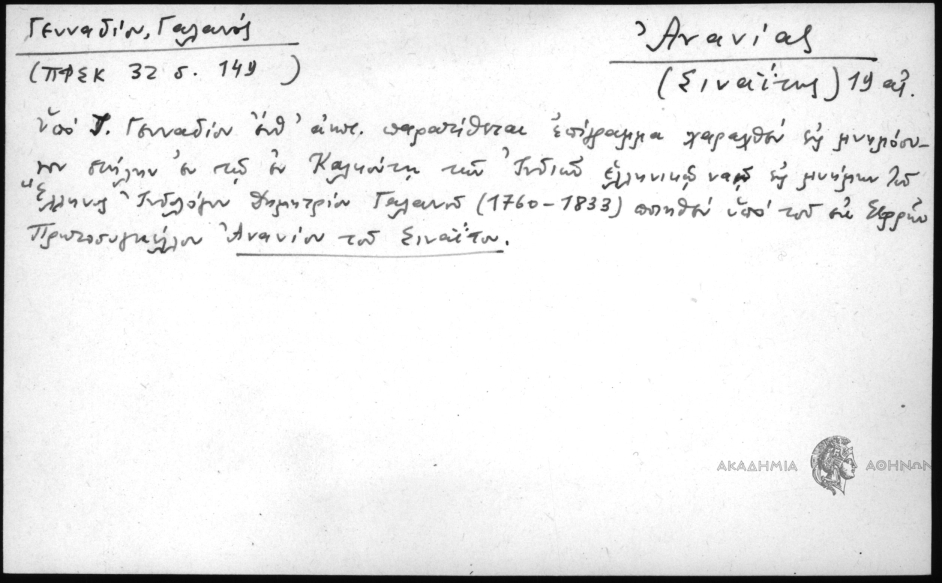 Γενναδίου, Γαλανός
(ΠΦΣΚ 32 σ. 149)
Ἀνανίας
(Σιναΐτης) 19 αἰ.
ὑπό Γενναδίου ἔνθ' ἀνωτ. παρατίθεται ἐπίγραμμα χαραχθέν εἰς μνημόσυ-
νον στήλην ἐν τῷ ἐν Καλκούτῃ τῶν Ἰνδιῶν ἑλληνικῷ ναῷ εἰς μνήμην τοῦ
Ἕλληνος Ἰνδολόγου Δημητρίου Γαλανοῦ (1760-1833) ποιηθέν ὑπό τοῦ ἐκ Σερρῶν
Πρωτοσυγκέλλου Ἀνανίου τοῦ Σιναΐτου.
ΑΚΑΔΗΜΙΑ ΑΘΗΝΩΝ